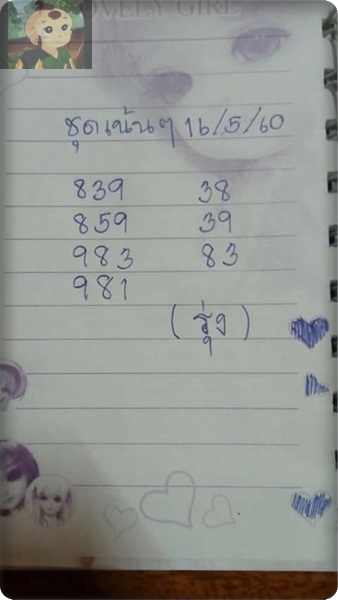 LOVELY GIRL
ชุดเน้นๆ 16/5/60
839 38
859 39
983 83
981
(รุ่ง)